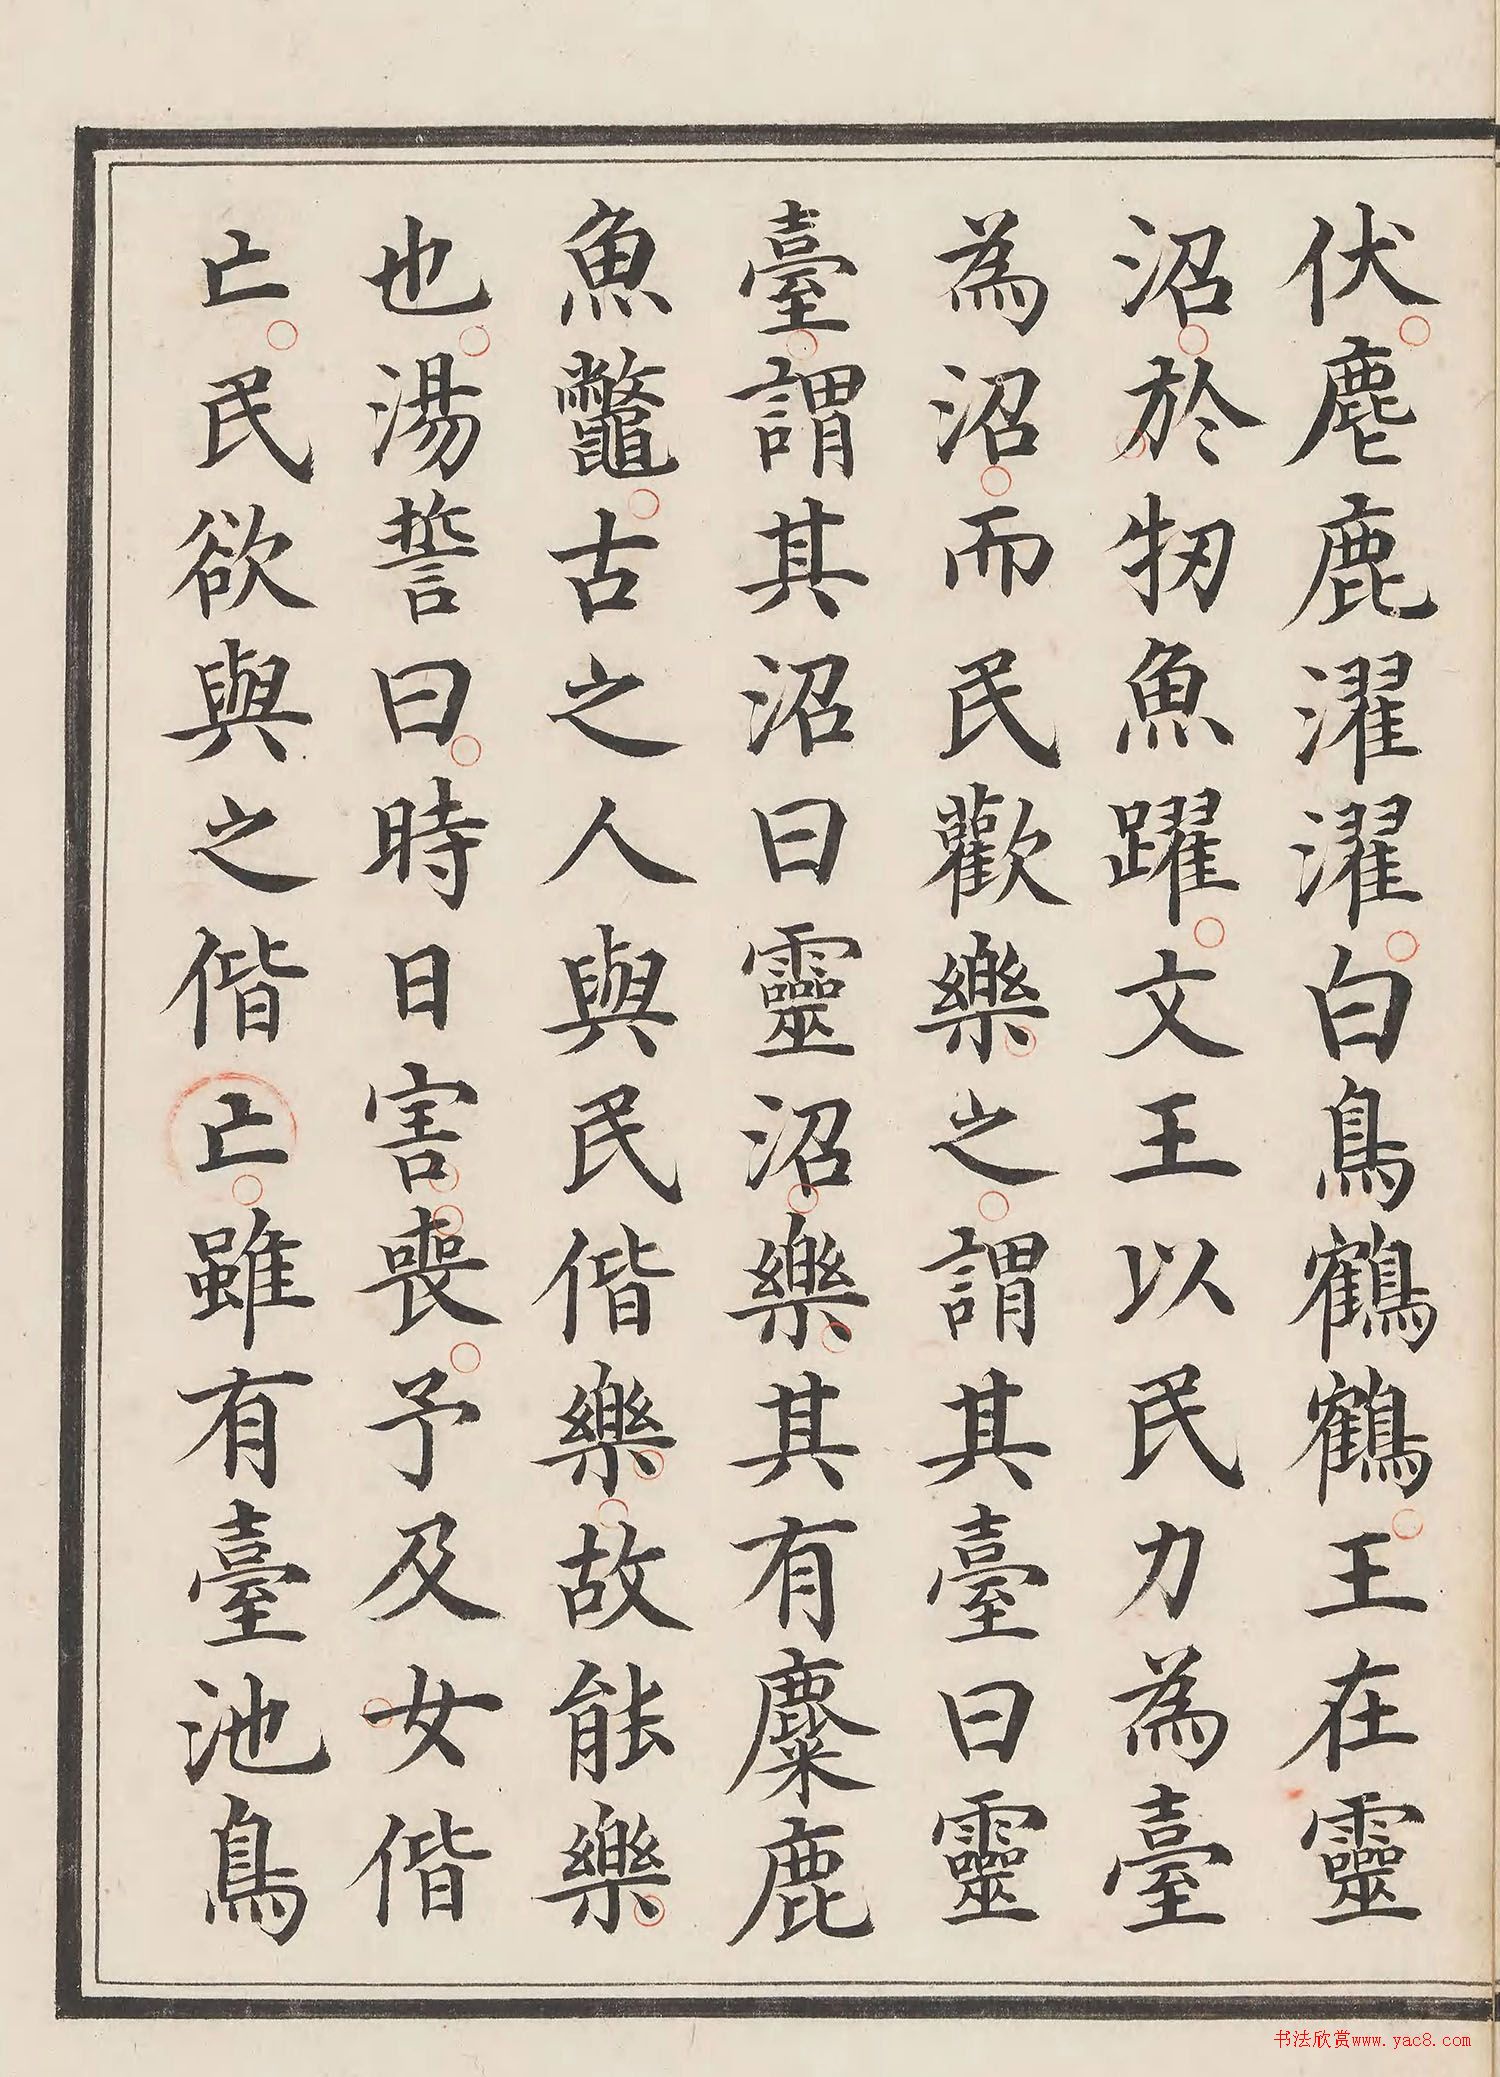 伏麀鹿濯濯白鳥鶴鶴王在靈
沼於牣魚躍文王以民力為臺
為沼而民歡樂之謂其臺曰靈
臺謂其沼曰靈沼樂其有麋鹿
魚鼈古之人與民偕樂故能樂
也湯誓曰時日害喪予及女偕
亡民欲與之偕亡雖有臺池鳥
书法欣赏www.yac8.com